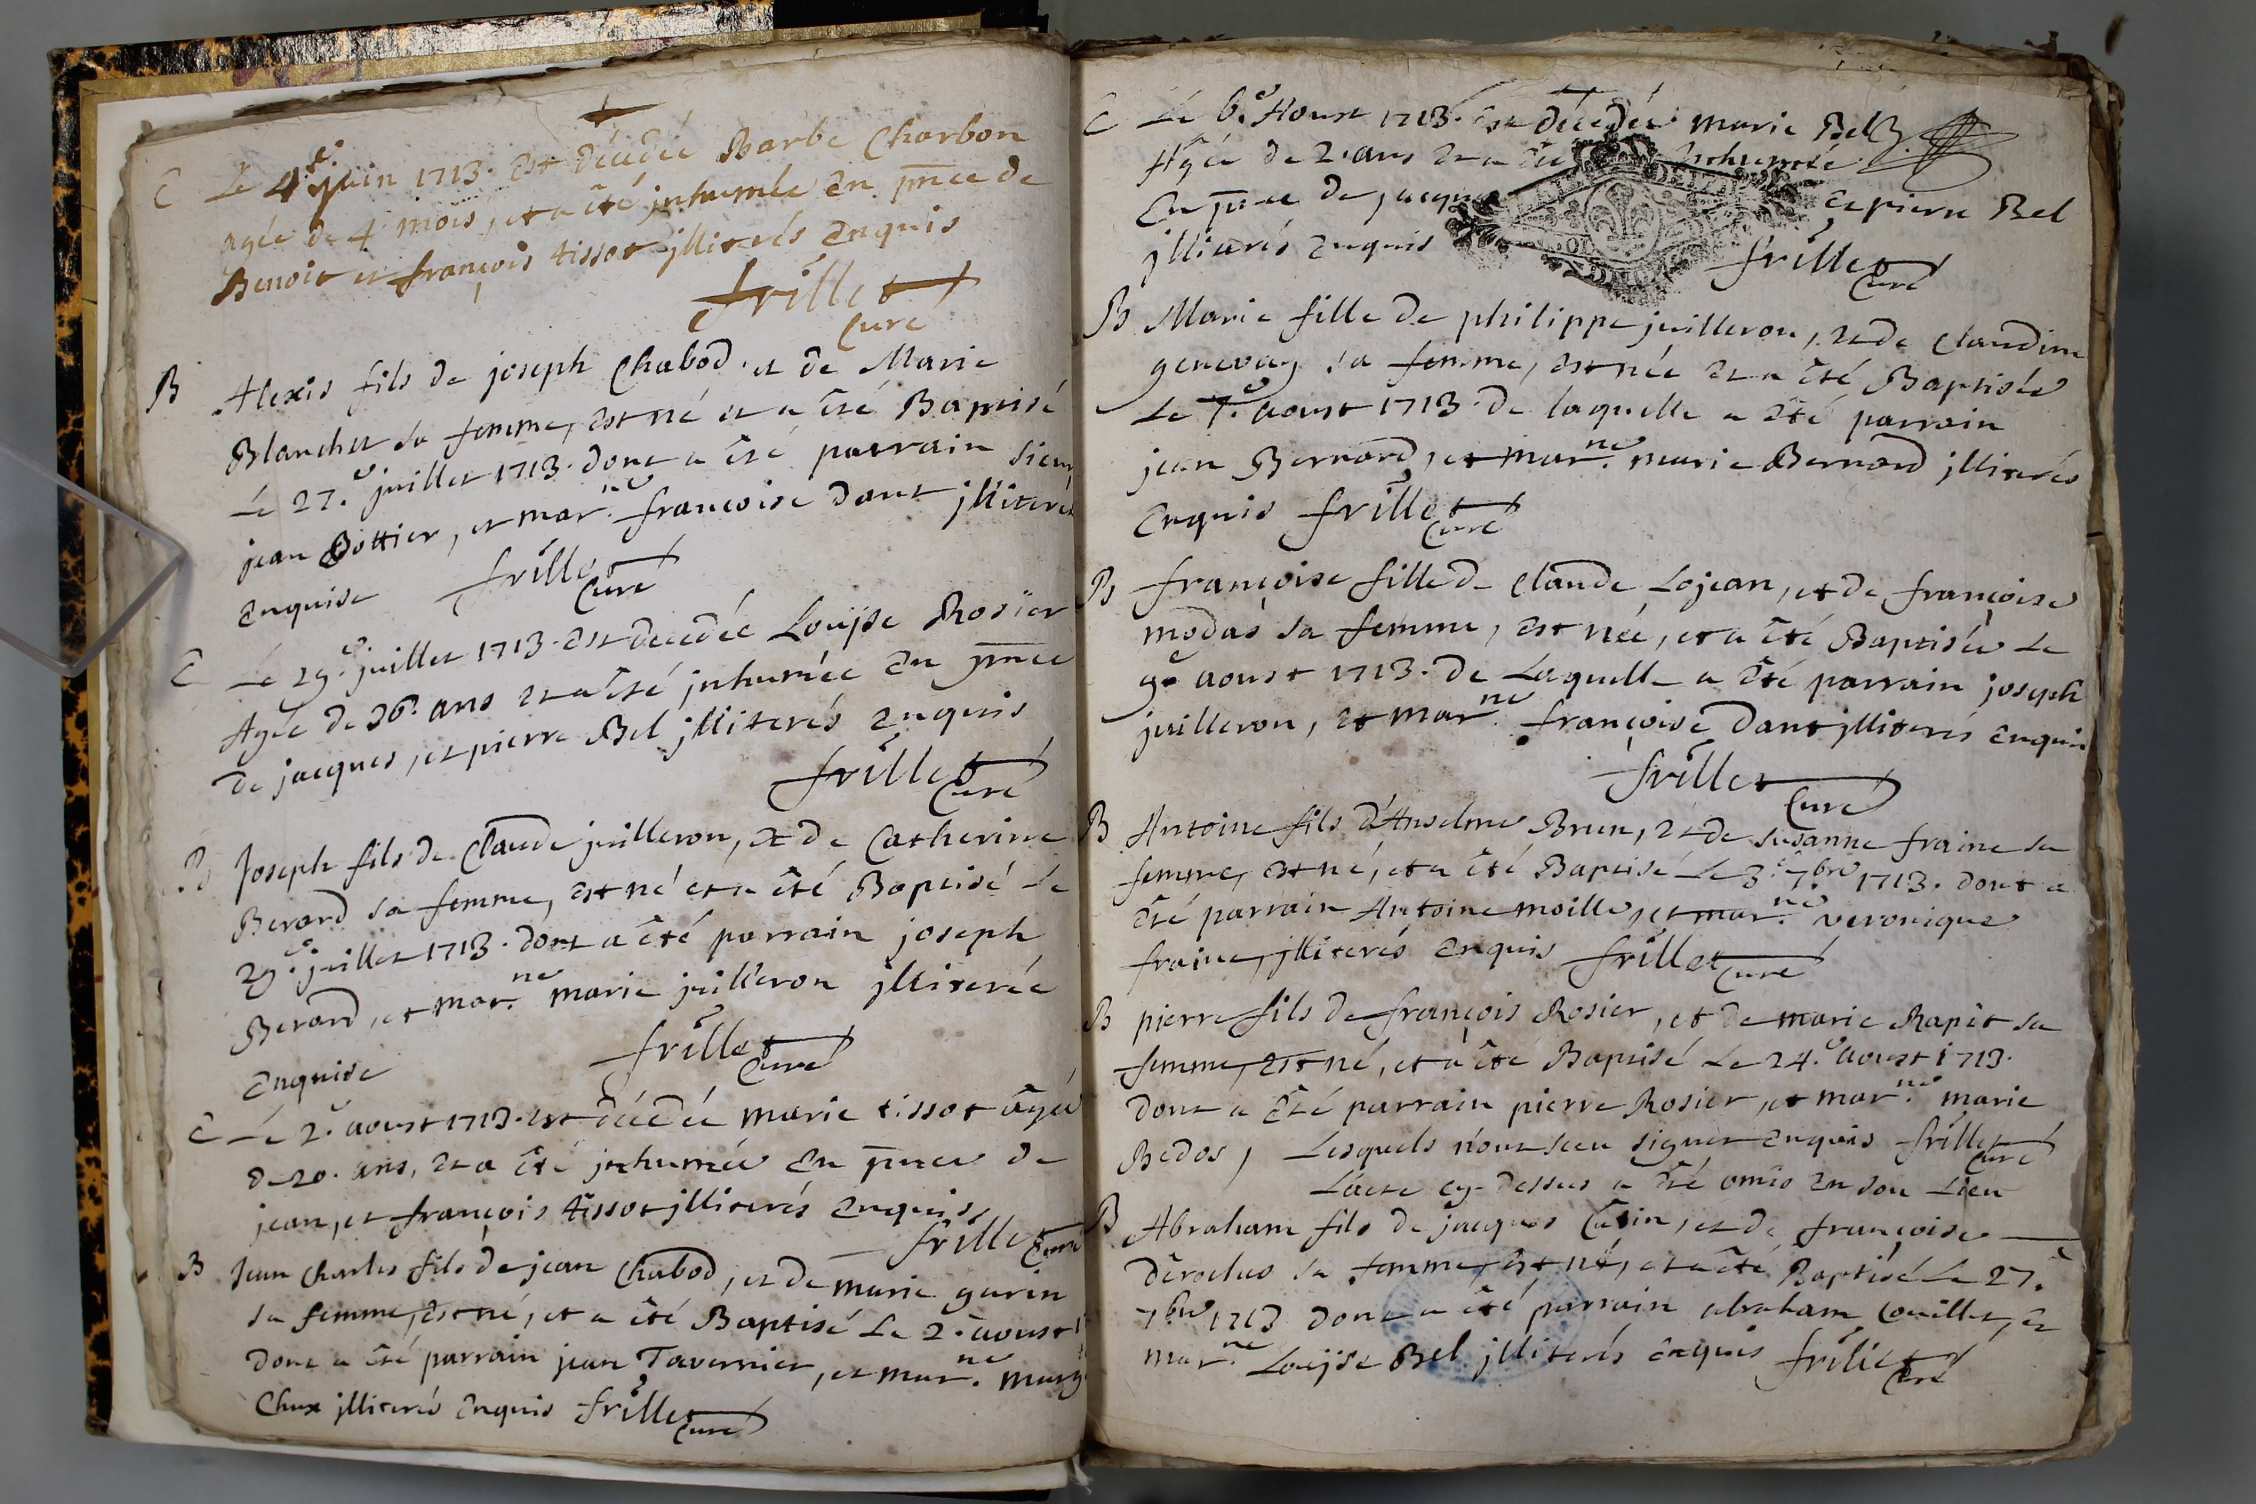 C Le 4.e juin 1713. est décédée Barbe Charbon
agée de 4 mois, et a êté jnhumée en pnce de
Benoit et françois tissot jlliterés enquis
frillet
Curé
B Alexis fils de joseph Chabod, et de Marie
Blanchet sa femme, est né et a êté Baptisé
Le 27.e juillet 1713. dont a êté parrain sieur
jean Cottier, et mar.ne françoise dant jlliteré
enquise frillet
Curé
C Le 29.e juillet 1713. est decedée Louÿse Rosier
Agée de 36. ans et a êté jnhumée en pnce
de jacques, et pierre Bel jlliterés enquis
frillet
Curé
B Joseph fils de Claude juilleron, et de Catherine
Berard sa femme, est né et a êté Baptisé Le
29.e juillet 1713. dont a êté parrain joseph
Berard, et mar.ne marie juilleron jlliterée
enquise frillet
Curé
C Le 2.e aoust 1713. est décédée marie tissot âgée
de 20. ans, et a êté jnhumée en pnce de
jean, et françois tissot jlliterés enquis
frillet Curé
B Jean Charles fils de jean Chabod, et de marie garin
sa femme, est né, et a êté Baptisé Le 2.e aoust
dont a êté parrain jean Tavernier, et mar.ne marg
Chux jlliterés enquis frillet
Curé
C Le 6.e Aoust 1713. est décédée marie Bel
Agée de 2. ans et a êté jnhumée
En pnce de jacques et pierre Bel
jlliterés enquis frillet
Curé
B Marie fille de philippe juilleron, et de Claudine
genevay sa femme, est née et a êté Baptisée
Le 7.e aoust 1713. de laquelle a êté parrain
jean Bernard, et mar.ne marie Bernard jlliterés
enquis frillet
Curé
B françoise fille de Claude Lojean, et de françoise
modas sa femme, est née, et a êté Baptisée Le
9.e aoust 1713. de Laquelle a êté parrain joseph
juilleron, et mar.ne françoise dant jlliterés enquis
frillet
Curé
B Antoine fils d'Anselme Brun, et de susanne fraine sa
femme, est né, et a êté Baptisé Le 3.e 7.bre 1713. dont a
êté parrain Antoine moille, et mar.ne veronique
fraine, jlliterés enquis frillet
Curé
B pierre fils de françois Rosier, et de marie Rapet sa
femme, est né, et a êté Baptisé Le 24.e aoust 1713.
dont a êté parrain pierre Rosier, et mar.ne marie
Bedos, Lesquels n'ont sceu signer enquis frillet
Curé
L'acte cy-dessus a êté omis en son Lieu
B Abraham fils de jacques et de françoise
sa femme, est né, et a êté Baptisé Le 27.e
7.bre 1713 dont a êté parrain abraham et
mar.ne Louÿse Bel jlliterés enquis frillet
Curé